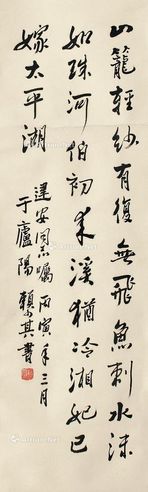 山笼轻纱有复無飛魚刺水沫
如珠河伯初来溪猶冷湘妃已
嫁太平湖
建安同志嘱丙寅年三月
于廬陽 賴少其書